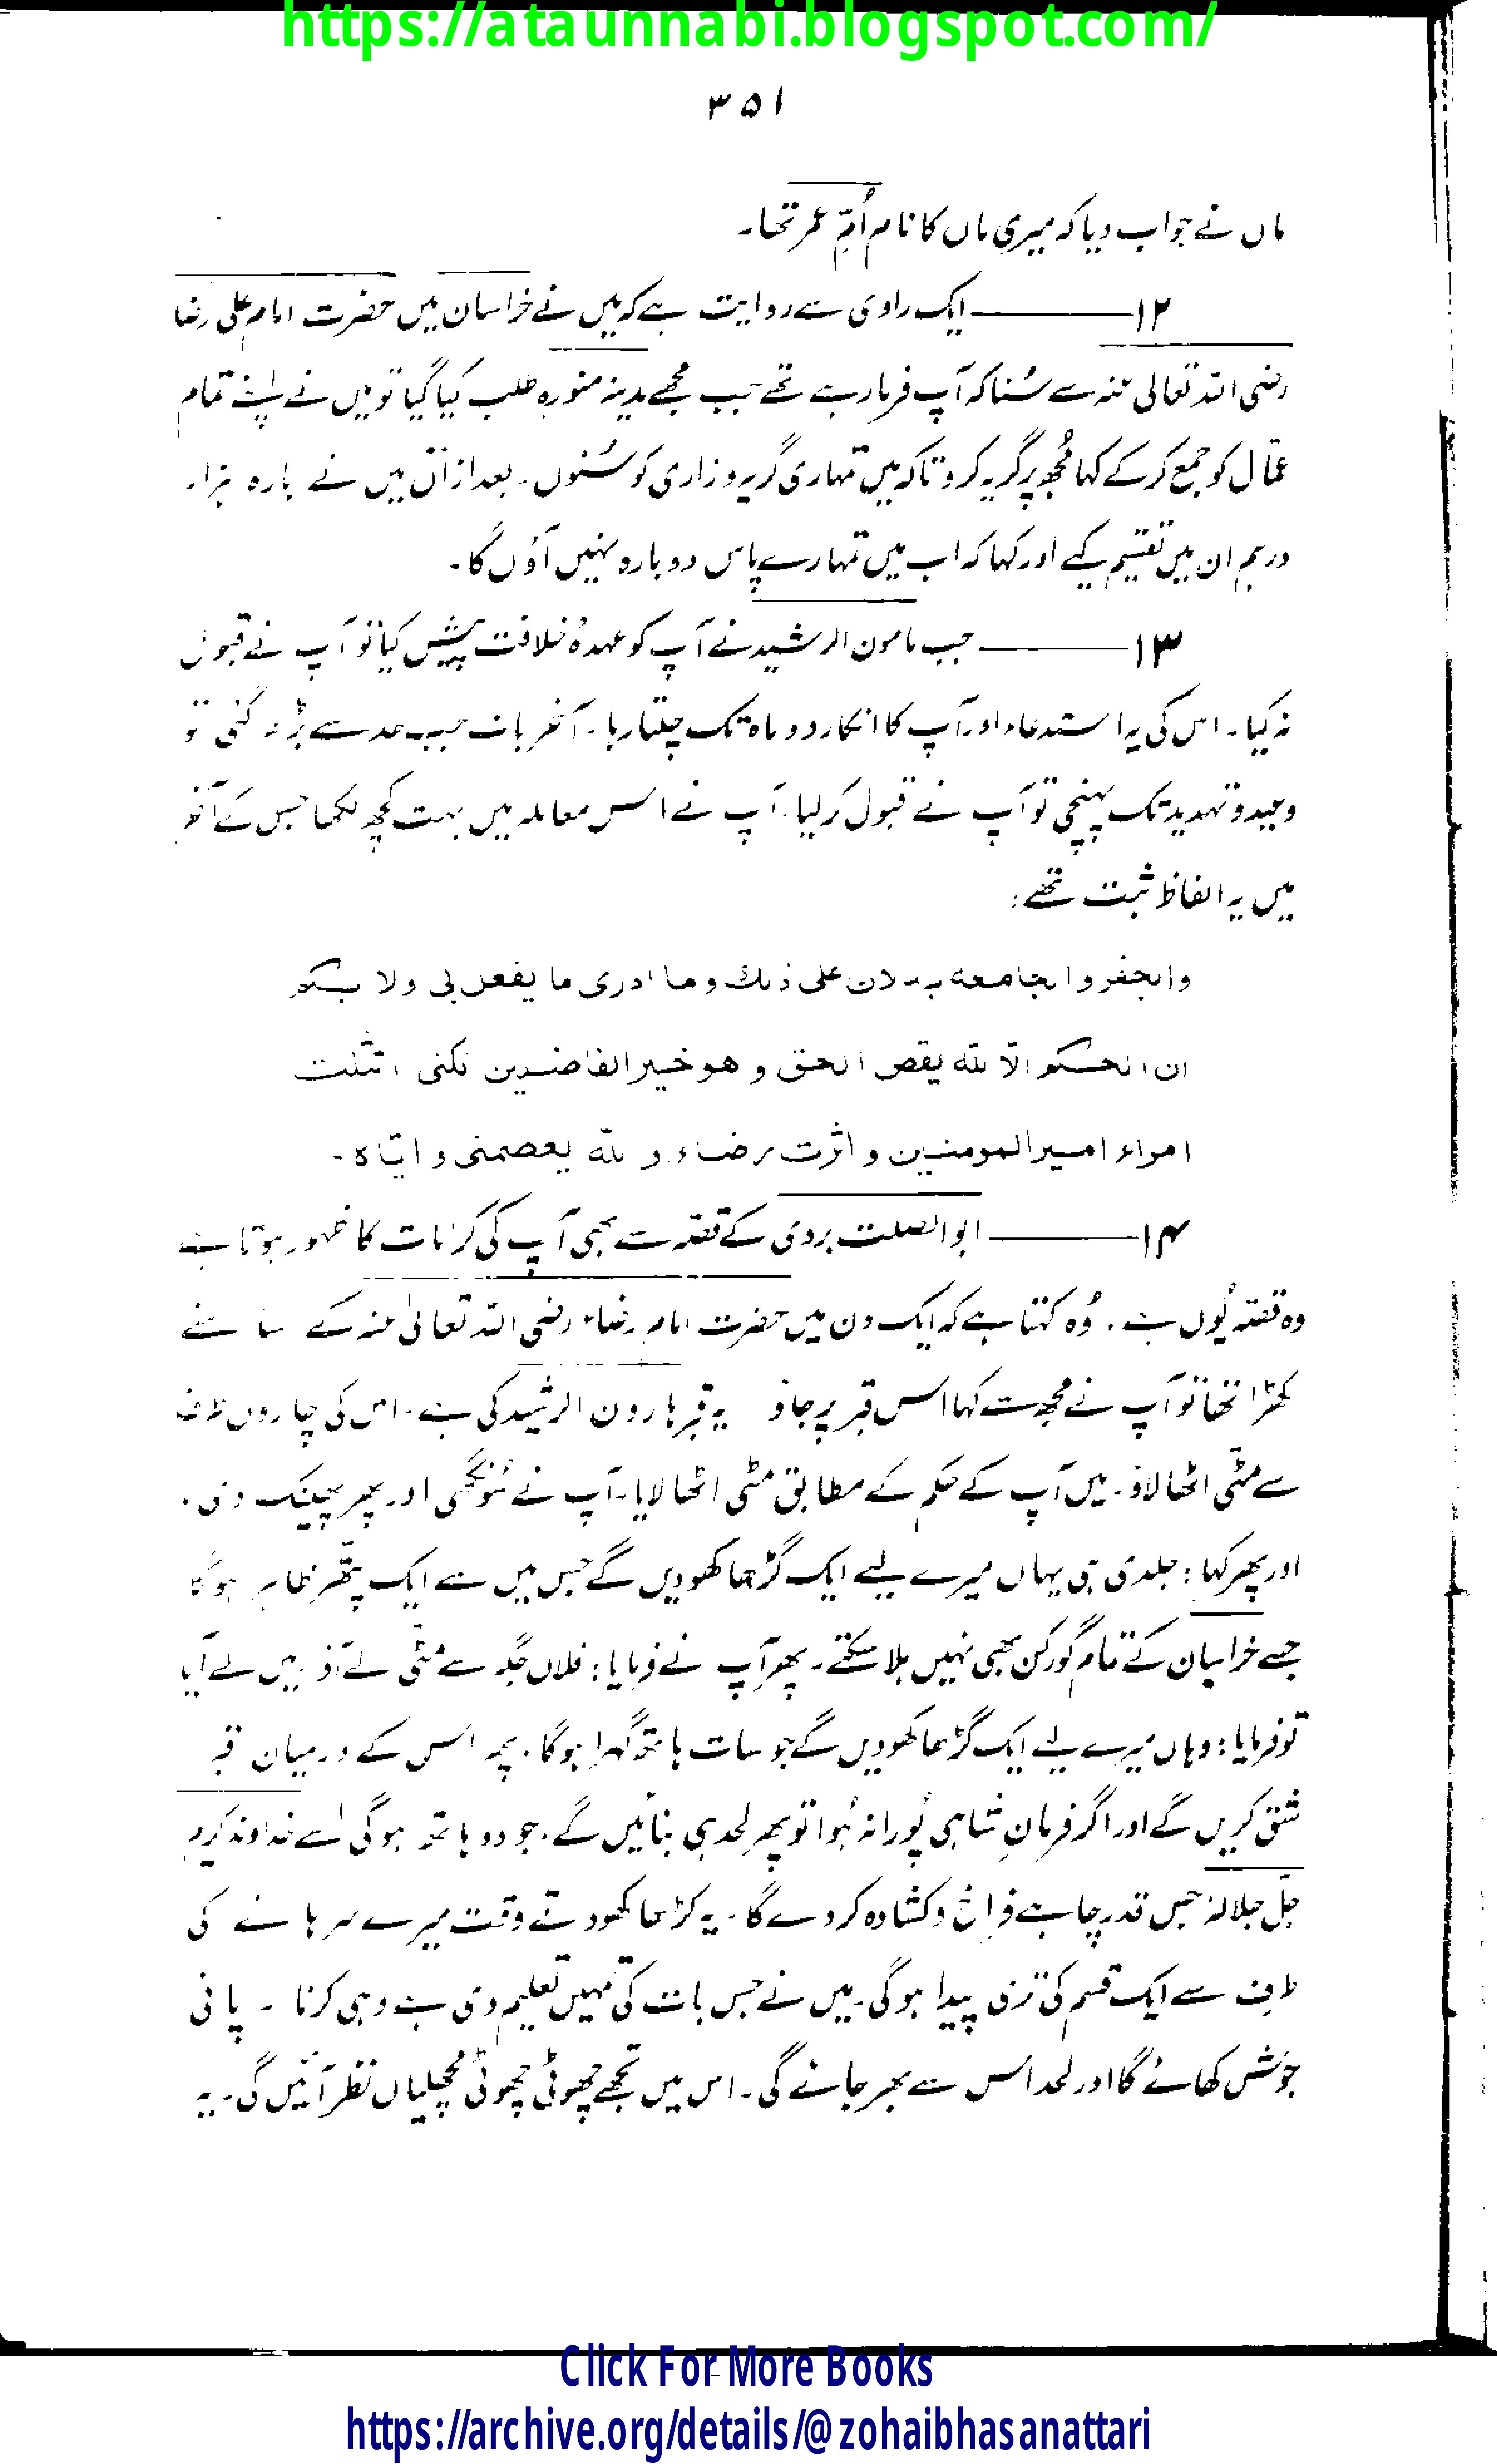 https://ataunnabi.blogspot.com/
۳۵۱
ماں نے جواب دیا کہ میری ماں کا نام اُمِّ عمر تھا۔
۱۲ ——— ایک راوی سے روایت ہے کہ میں نے خراسان میں حضرت امام علی رضا
رضی اللہ تعالیٰ عنہ سے سُنا کہ آپ فرما رہے تھے جب مجھے مدینہ منورہ طلب کیا گیا تو میں نے اپنے تمام
عمّال کو جمع کر کے کہا مُجھ پر گریہ کرو تاکہ میں تمہاری گریہ و زاری کو سُنوں۔ بعد ازاں میں نے بارہ ہزار
درہم ان میں تقسیم کیے اور کہا کہ اب میں تمہارے پاس دوبارہ نہیں آؤں گا۔
۱۳ ——— جب مامون الرشید نے آپ کو عہدۂ خلافت پیش کیا تو آپ نے قبول
نہ کیا۔ اس کی یہ استدعاء اور آپ کا انکار دو ماہ تک چلتا رہا۔ آخر بات جب حد سے بڑھ گئی تو
وعید و تہدید تک پہنچی تو آپ نے قبول کر لیا۔ آپ نے اس معاملہ میں بہت کچھ لکھا جس کے آخر
میں یہ الفاظ ثبت تھے:
والجفر والجامعة يدلان على ذلك وما ادرى ما يفعل بى ولا بكم
ان الحكم الا لله يقص الحق و هو خير الفاضلين لكنى امتثلت
امراء امير المومنين و اثرت رضاء و لله يعصمنى و اياه۔
۱۴ ——— ابوالصلت ہروی کے قصّہ سے بھی آپ کی کرامات کا ظہور ہوتا ہے
وہ قصّہ یُوں ہے۔ وُہ کہتا ہے کہ ایک دن میں حضرت امام رضاء رضی اللہ تعالیٰ عنہ کے سامنے
کھڑا تھا تو آپ نے مجھ سے کہا اس قبر پر جاؤ یہ قبر ہارون الرشید کی ہے۔ اس کی چاروں طرف
سے مٹّی اٹھا لاؤ۔ میں آپ کے حکم کے مطابق مٹّی اٹھا لایا۔ آپ نے سُونگھی اور پھر پھینک دی۔
اور پھر کہا: جلدی ہی یہاں میرے لیے ایک گڑھا کھودیں گے جس میں سے ایک پتّھر ظاہر ہو گا
جسے خراسان کے تمام گورکن بھی نہیں ہلا سکتے۔ پھر آپ نے فرمایا: فلاں جگہ سے مٹّی لے آؤ۔ میں لے آیا
تو فرمایا: وہاں میرے لیے ایک گڑھا کھودیں گے جو سات ہاتھ گہرا ہو گا۔ پھر اس کے درمیان قبر
شق کریں گے اور اگر فرمانِ شاہی پُورا نہ ہُوا تو پھر لحد ہی بنائیں گے۔ جو دو ہاتھ ہو گی اُسے خداوند کریم
جلّ جلالہٗ جس قدر چاہے فراخ و کشادہ کر دے گا۔ یہ گڑھا کھودتے وقت میرے سرہانے کی
طرف سے ایک قسم کی تری پیدا ہو گی۔ میں نے جس بات کی تمہیں تعلیم دی ہے وہی کرنا ۔ پانی
جوش کھائے گا اور لحد اس سے بھر جائے گی۔ اس میں تجھے چھوٹی چھوٹی مُچھلیاں نظر آئیں گی۔ یہ
Click For More Books
https://archive.org/details/@zohaibhasanattari